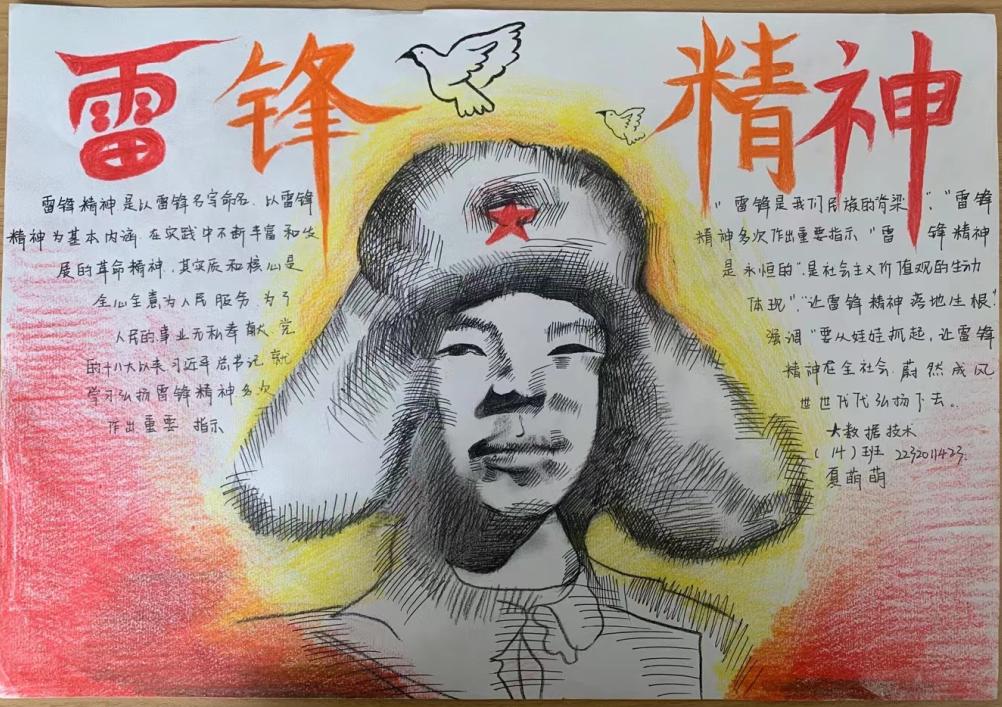 雷锋精神
雷锋精神是以雷锋名字命名.以雷锋
精神为基本内涵.在实践中不断丰富和发
展的革命精神.其实质和核心是
全心全意为人民服务.为了
人民的事业无私奉献.党
的十八大以来习近平总书记就
学习弘扬雷锋精神多次
作出重要指示
"雷锋是我们民族的脊梁"."雷锋
精神多次作出重要指示"雷锋精神
是永恒的".是社会主义价值观的生动
体现"."让雷锋精神落地生根"
强调"要从娃娃抓起,让雷锋
精神在全社会.蔚然成风
世世代代弘扬下去..
大数据技术
(14)班 2232011423.
夏萌萌